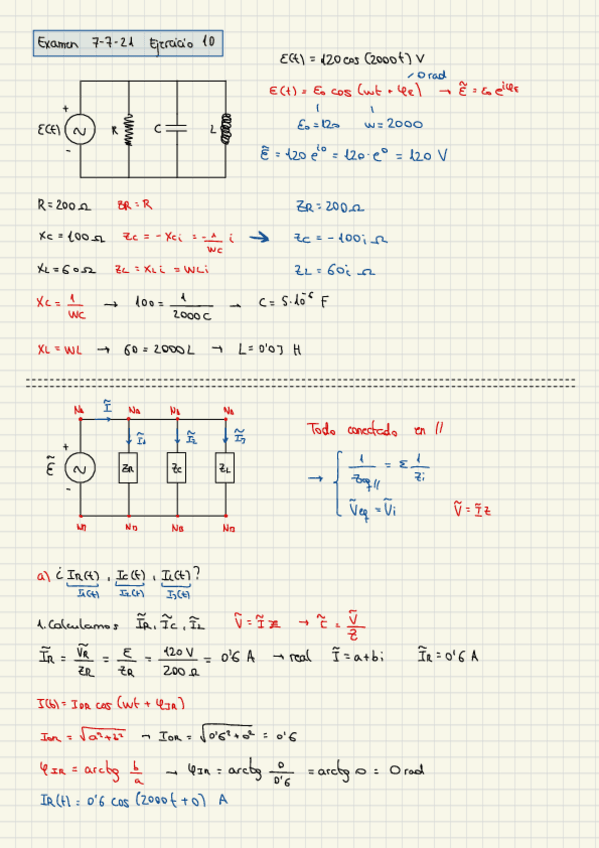 Examen 7-7-21 Ejercicio 10
E(t) = 120 cos (2000t) V
0 rad
E(t) = E₀ cos (wt + φε) → Ẽ = ε₀ e^iφε
E₀ = 120 w = 2000
Ẽ = 120 e^i0 = 120 · e^0 = 120 V
+ E(t) - R C L
R = 200 Ω ZR = R ZR = 200 Ω
Xc = 100 Ω Zc = -Xc i = -1/WC i → Zc = -100i Ω
XL = 60 Ω ZL = XL i = WL i ZL = 60i Ω
Xc = 1/WC → 100 = 1/2000C → C = 5·10^-6 F
XL = WL → 60 = 2000L → L = 0'03 H
NA Ĩ NA NA NA
Ĩ₁ Ĩ₂ Ĩ₃
+ Ẽ - ZR ZC ZL
NB NB NB NB
Todo conectado en //
→ { 1/Zeq// = Σ 1/Zi
Ṽeq = Ṽi Ṽ = Ĩ Z
a) ¿ IR(t), IC(t), IL(t)?
I₁(t) I₂(t) I₃(t)
1. Calculamos ĨR, ĨC, ĨL Ṽ = Ĩ Z → Ĩ = Ṽ/Z
ĨR = ṼR/ZR = E/ZR = 120 V/200 Ω = 0'6 A → real Ĩ = a + bi ĨR = 0'6 A
I(t) = I0R cos (wt + φIR)
I0R = √a²+b² → I0R = √0'6²+0² = 0'6
φIR = arctg b/a → φIR = arctg 0/0'6 = arctg 0 = 0 rad
IR(t) = 0'6 cos (2000t + 0) A